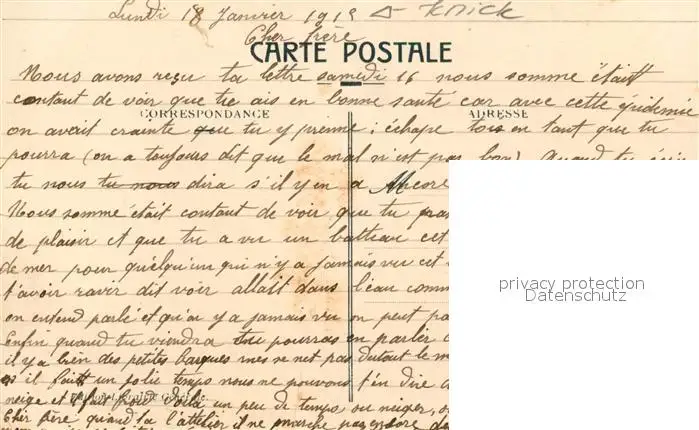 Lundi 18 Janvier 1915
Cher frère
CARTE POSTALE
Nous avons reçu ta lettre samedi 16 nous somme était
contant de voir que tu ais en bonne santé car avec cette épidemie
CORRESPONDANCE ADRESSE
on avait crainte que tu y prenne; échape tois en tant que tu
pourra (on a toujours dit que le mal n'est pas bon) Quand tu
tu nous tu nous dira s'il y en a encore
Nous somme était contant de voir que tu
de plaisir et que tu a vu un batteau cet
de mer pour quelqu'un qui n'y a jamais vu cet
t'avoir ravir dit voir allait dans l'eau comm
on entend parlé et qu'on y a jamais vu on peut pa
Enfin quand tu viendra tu pourras en parler
il y a bien des petits barques mes se net pas dutout le m
s il fait un jolie temps nous ne pouvons t'en dire
neige et il fait froid voilà un peu de temps ou neiger, o
Cher frère quand la l'attelier il ne marche pas
privacy protection
Datenschutz